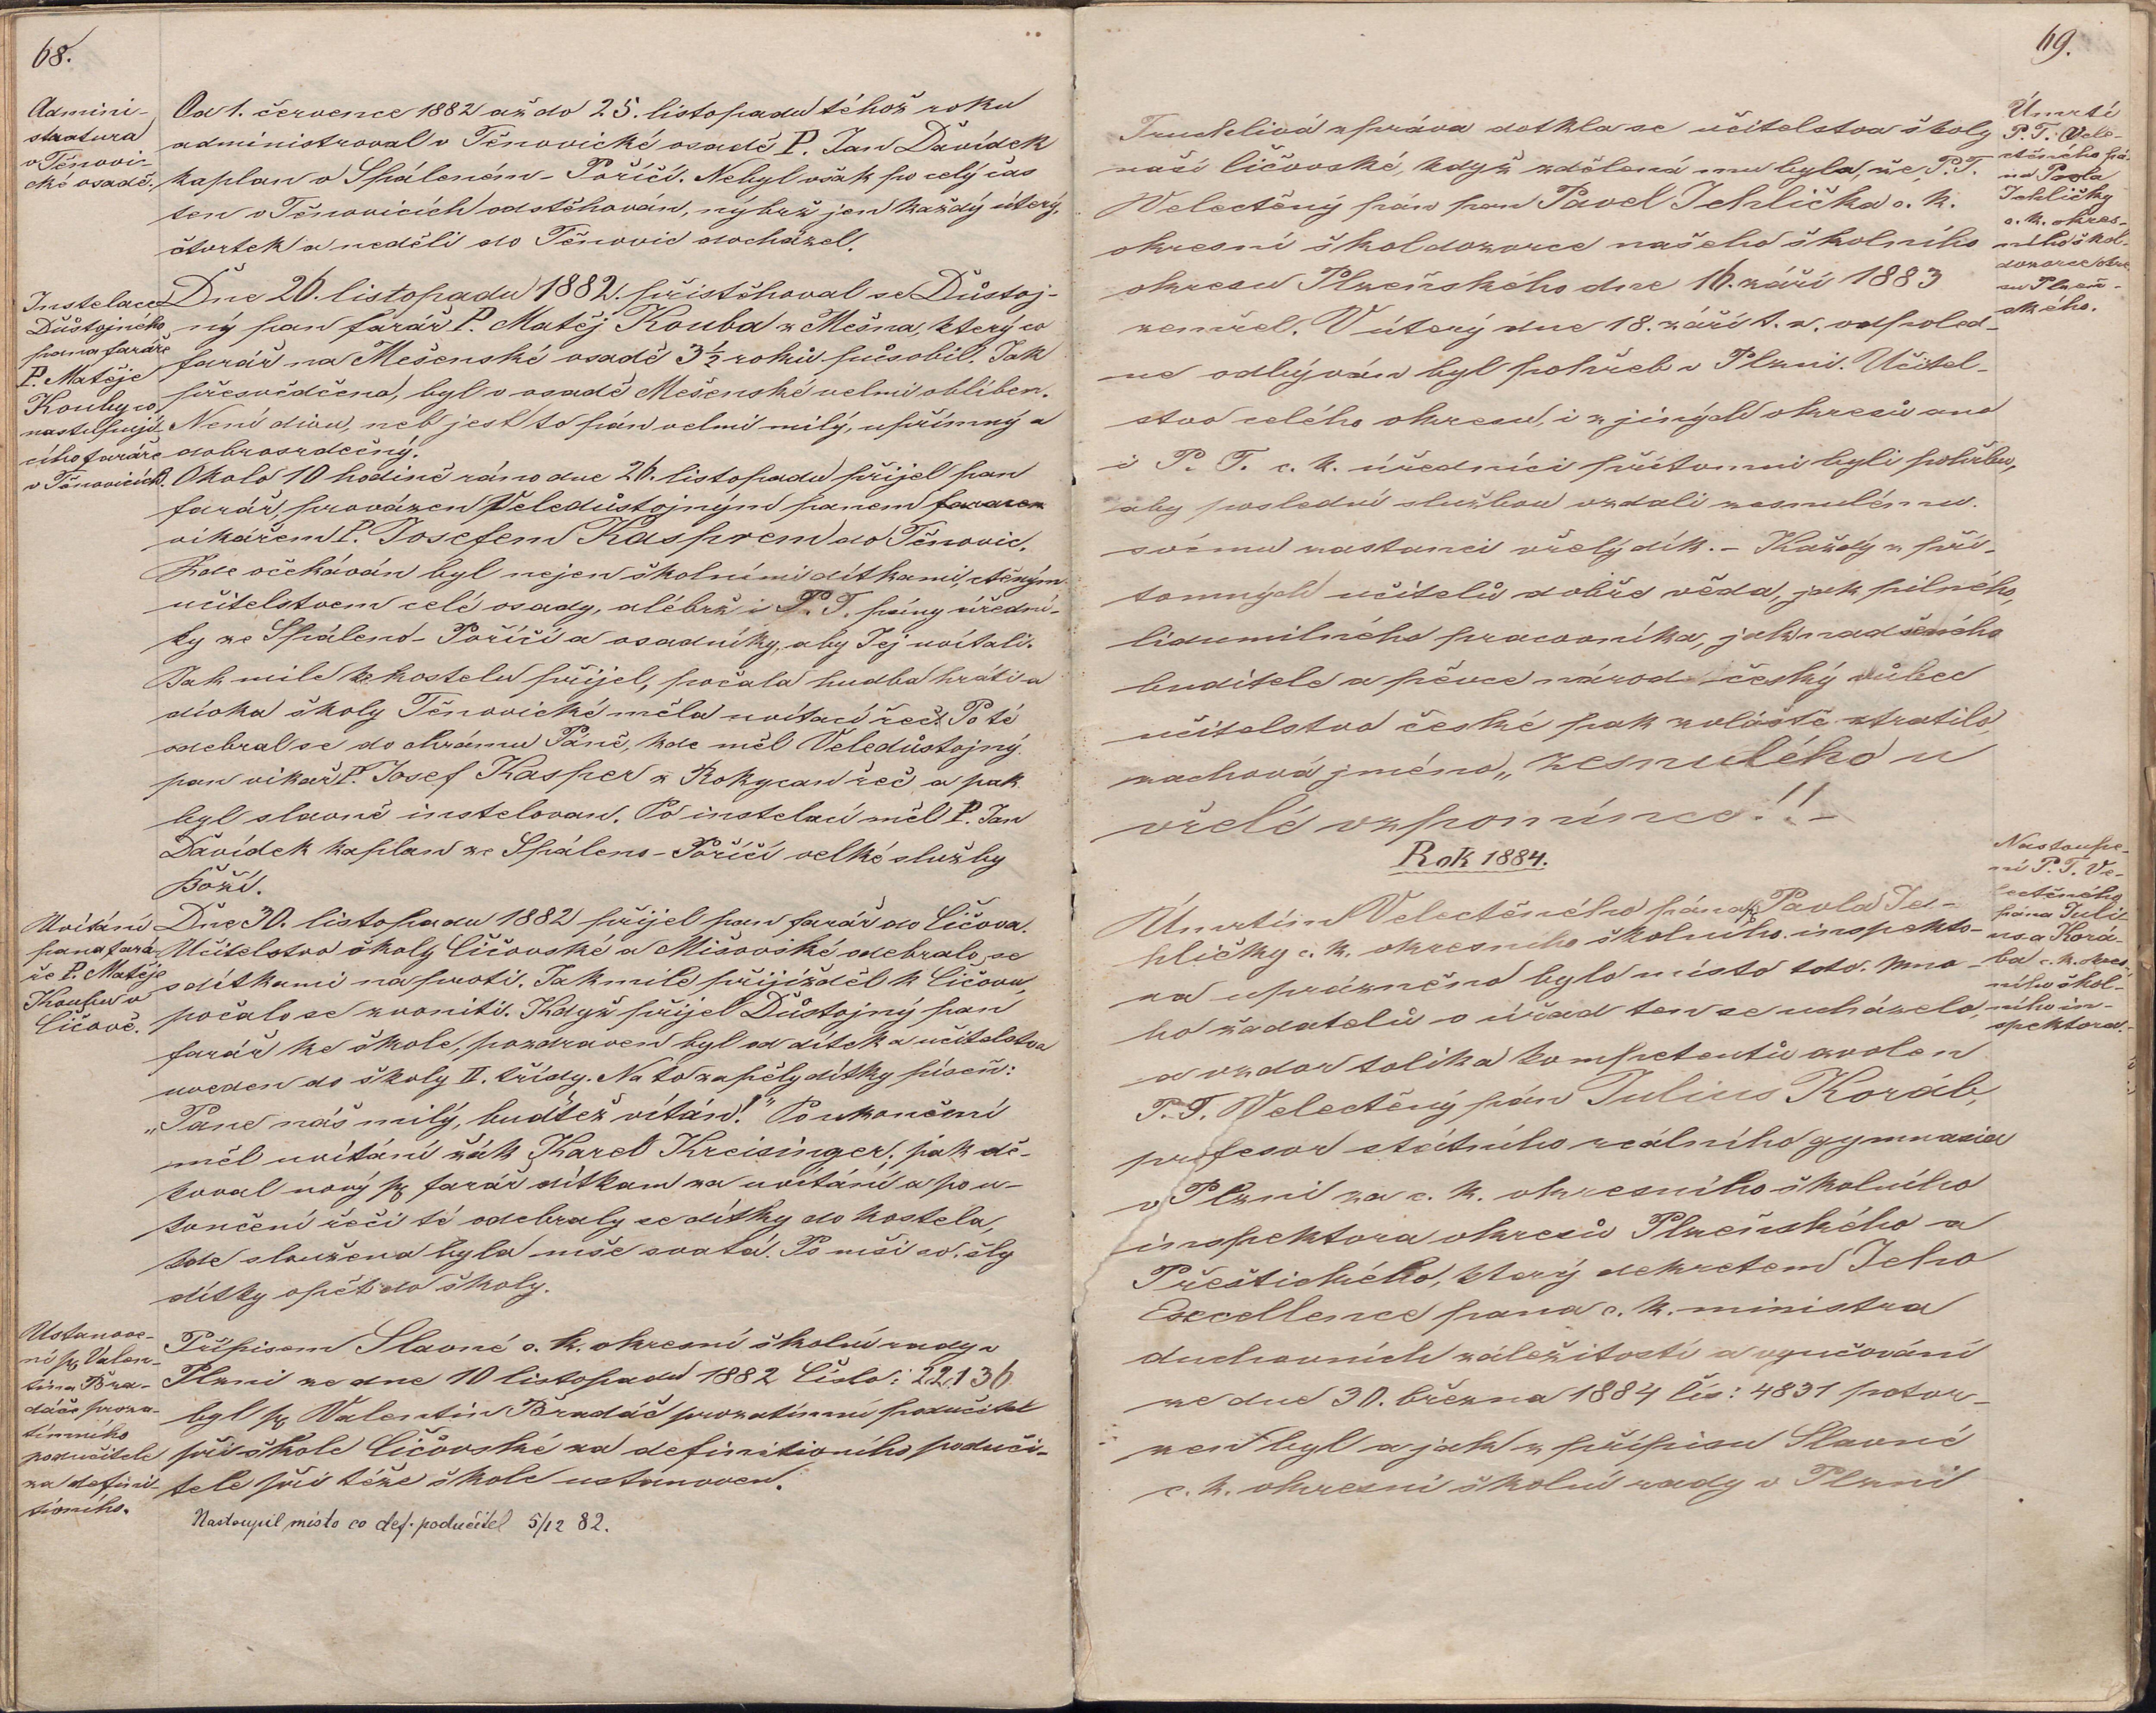 68.
Admini-
stratura
v Těnovi-
cké osadě.
Od 1. července 1882 až do 25. listopadu téhož roku
administroval v Těnovické osadě P. Jan Davídek
kaplan v Spáleném-Poříčí. Nebyl však po celý čas
ten v Těnovicích odstěhován, nýbrž jen každý úterý,
čtvrtek a neděli do Těnovic docházel.
Instelace
Důstojného
pana faráře
P. Matěje
Kouby co
nastupují-
cího faráře
v Těnovicích.
Dne 26. listopadu 1882. přistěhoval se Důstoj-
ný pan farář P. Matěj Kouba z Mešna, který co
farář na Mešenské osadě 3½ roků působil. Jak
přesvědčeno, byl v osadě Mešenské velmi oblíben.
Není divu, neb jest to pán velmi milý, upřímný a
dobrosrdečný.
Okolo 10 hodině ráno dne 26. listopadu přijel pan
farář, provázen Veledůstojným panem farare
vikářem P. Josefem Kasprem do Těnovic.
Kde očekáván byl nejen školními dítkami, ctěným
učitelstvem celé osady, alébrž i P. T. pány úřední-
ky ze Spáleno-Poříčí a osadníky, aby Jej uvítali.
Jak mile ke kostelu přijel, počala hudba hráti a
dívka školy Těnovické měla uvítací řeč. Po té
odebral se do chrámu Páně, kde měl Veledůstojný
pan vikář P. Josef Kasper z Rokycan řeč a pak
byl slavně instelovan. Po instelaci měl P. Jan
Davídek kaplan ze Spáleno-Poříčí velké služby
Boží.
Uvítání
pana fará-
ře P. Matěje
Kouby v
Čičově.
Dne 30. listopadu 1882 přijel pan farář do Čičova.
Učitelstvo školy Čičovské a Mišovské odebralo se
s dítkami naproti. Jak mile přijížděl k Čičovu,
počalo se zvoniti. Když přijel Důstojný pan
farář ke škole, pozdraven byl od dítek a učitelstva
uveden do školy II. třídy. Na to zapěly dítky píseň:
„Pane náš milý, budiž vítán!" Po ukončení
měl uvítání žák Karel Kreisinger, pak dě-
koval nový p. farář dítkam za uvítání a po u-
končení řeči té odebraly se dítky do kostela,
kde sloužena byla mše svatá. Po mši sv. šly
dítky opět do školy.
Ustanove-
ní p. Valen-
tina Bra-
dáče proza-
tímního
podučitele
za defini-
tivního.
Přípisem Slavné c. k. okresní školní rady v
Plzni ze dne 10 listopadu 1882 Číslo: 22136
byl p. Valentin Bradáč prozatímní podučitel
při škole Čičovské za definitivního poduči-
tele při téže škole ustanoven.
Nastoupil místo co def. podučitel 5/12 82.
69.
Úmrtí
P. T. Vele-
ctěného pá-
na Pavla
Jehličky
c. k. okres-
ního škol-
dozorce okre
su Plzeň-
ského.
Truchlivá zpráva dotkla se učitelstva školy
naší čičovské, když sdělená mu byla, že P. T.
Velectěný pán pan Pavel Jehlička c. k.
okresní školdozorce našeho školního
okresu Plzeňského dne 16. září 1883
zemřel. V úterý dne 18. září t. r. odpoled-
ne odbýván byl pohřeb v Plzni. Učitel-
stvo celého okresu, i z jiných okresů ano
i P. T. c. k. úředníci přítomni byli pohřbu,
aby poslední službou vzdali zesnulému
svému zastanci vřelý dík. - Každý z pří-
tomných učitelů dobře věda, jak pilného,
lidumilného pracovníka, jak nadšeného
buditele a pěvce národ český vůbec
učitelstvo české pak zvláště ztratilo,
zachová jméno „zesnulého" u
vřelé vzpomínce!! -
Rok 1884.
Nastoupe-
ní P. T. Ve-
lectěného
pána Juli-
usa Korá-
ba c. k. okres
ního škol-
ního in-
spektora.
Úmrtím Velectěného pána p. Pavla Je-
hličky c. k. okresního školního inspekto-
ra uprázněno bylo místo toto. Mno-
ho žadatelů o úřad ten se ucházelo,
a vzdor tolika kompetentů zvolen
P. T. Velectěný pán Julius Koráb,
profesor státního reálního gymnasia
v Plzni za c. k. okresního školního
inspektora okresů Plzeňského a
Přeštického, který dekretem Jeho
Excellence pana c. k. ministra
duchovních záležitostí a vyučování
ze dne 30. března 1884 čís: 4831 potvr-
zen byl a jak z přípisu Slavné
c. k. okresní školní rady v Plzni